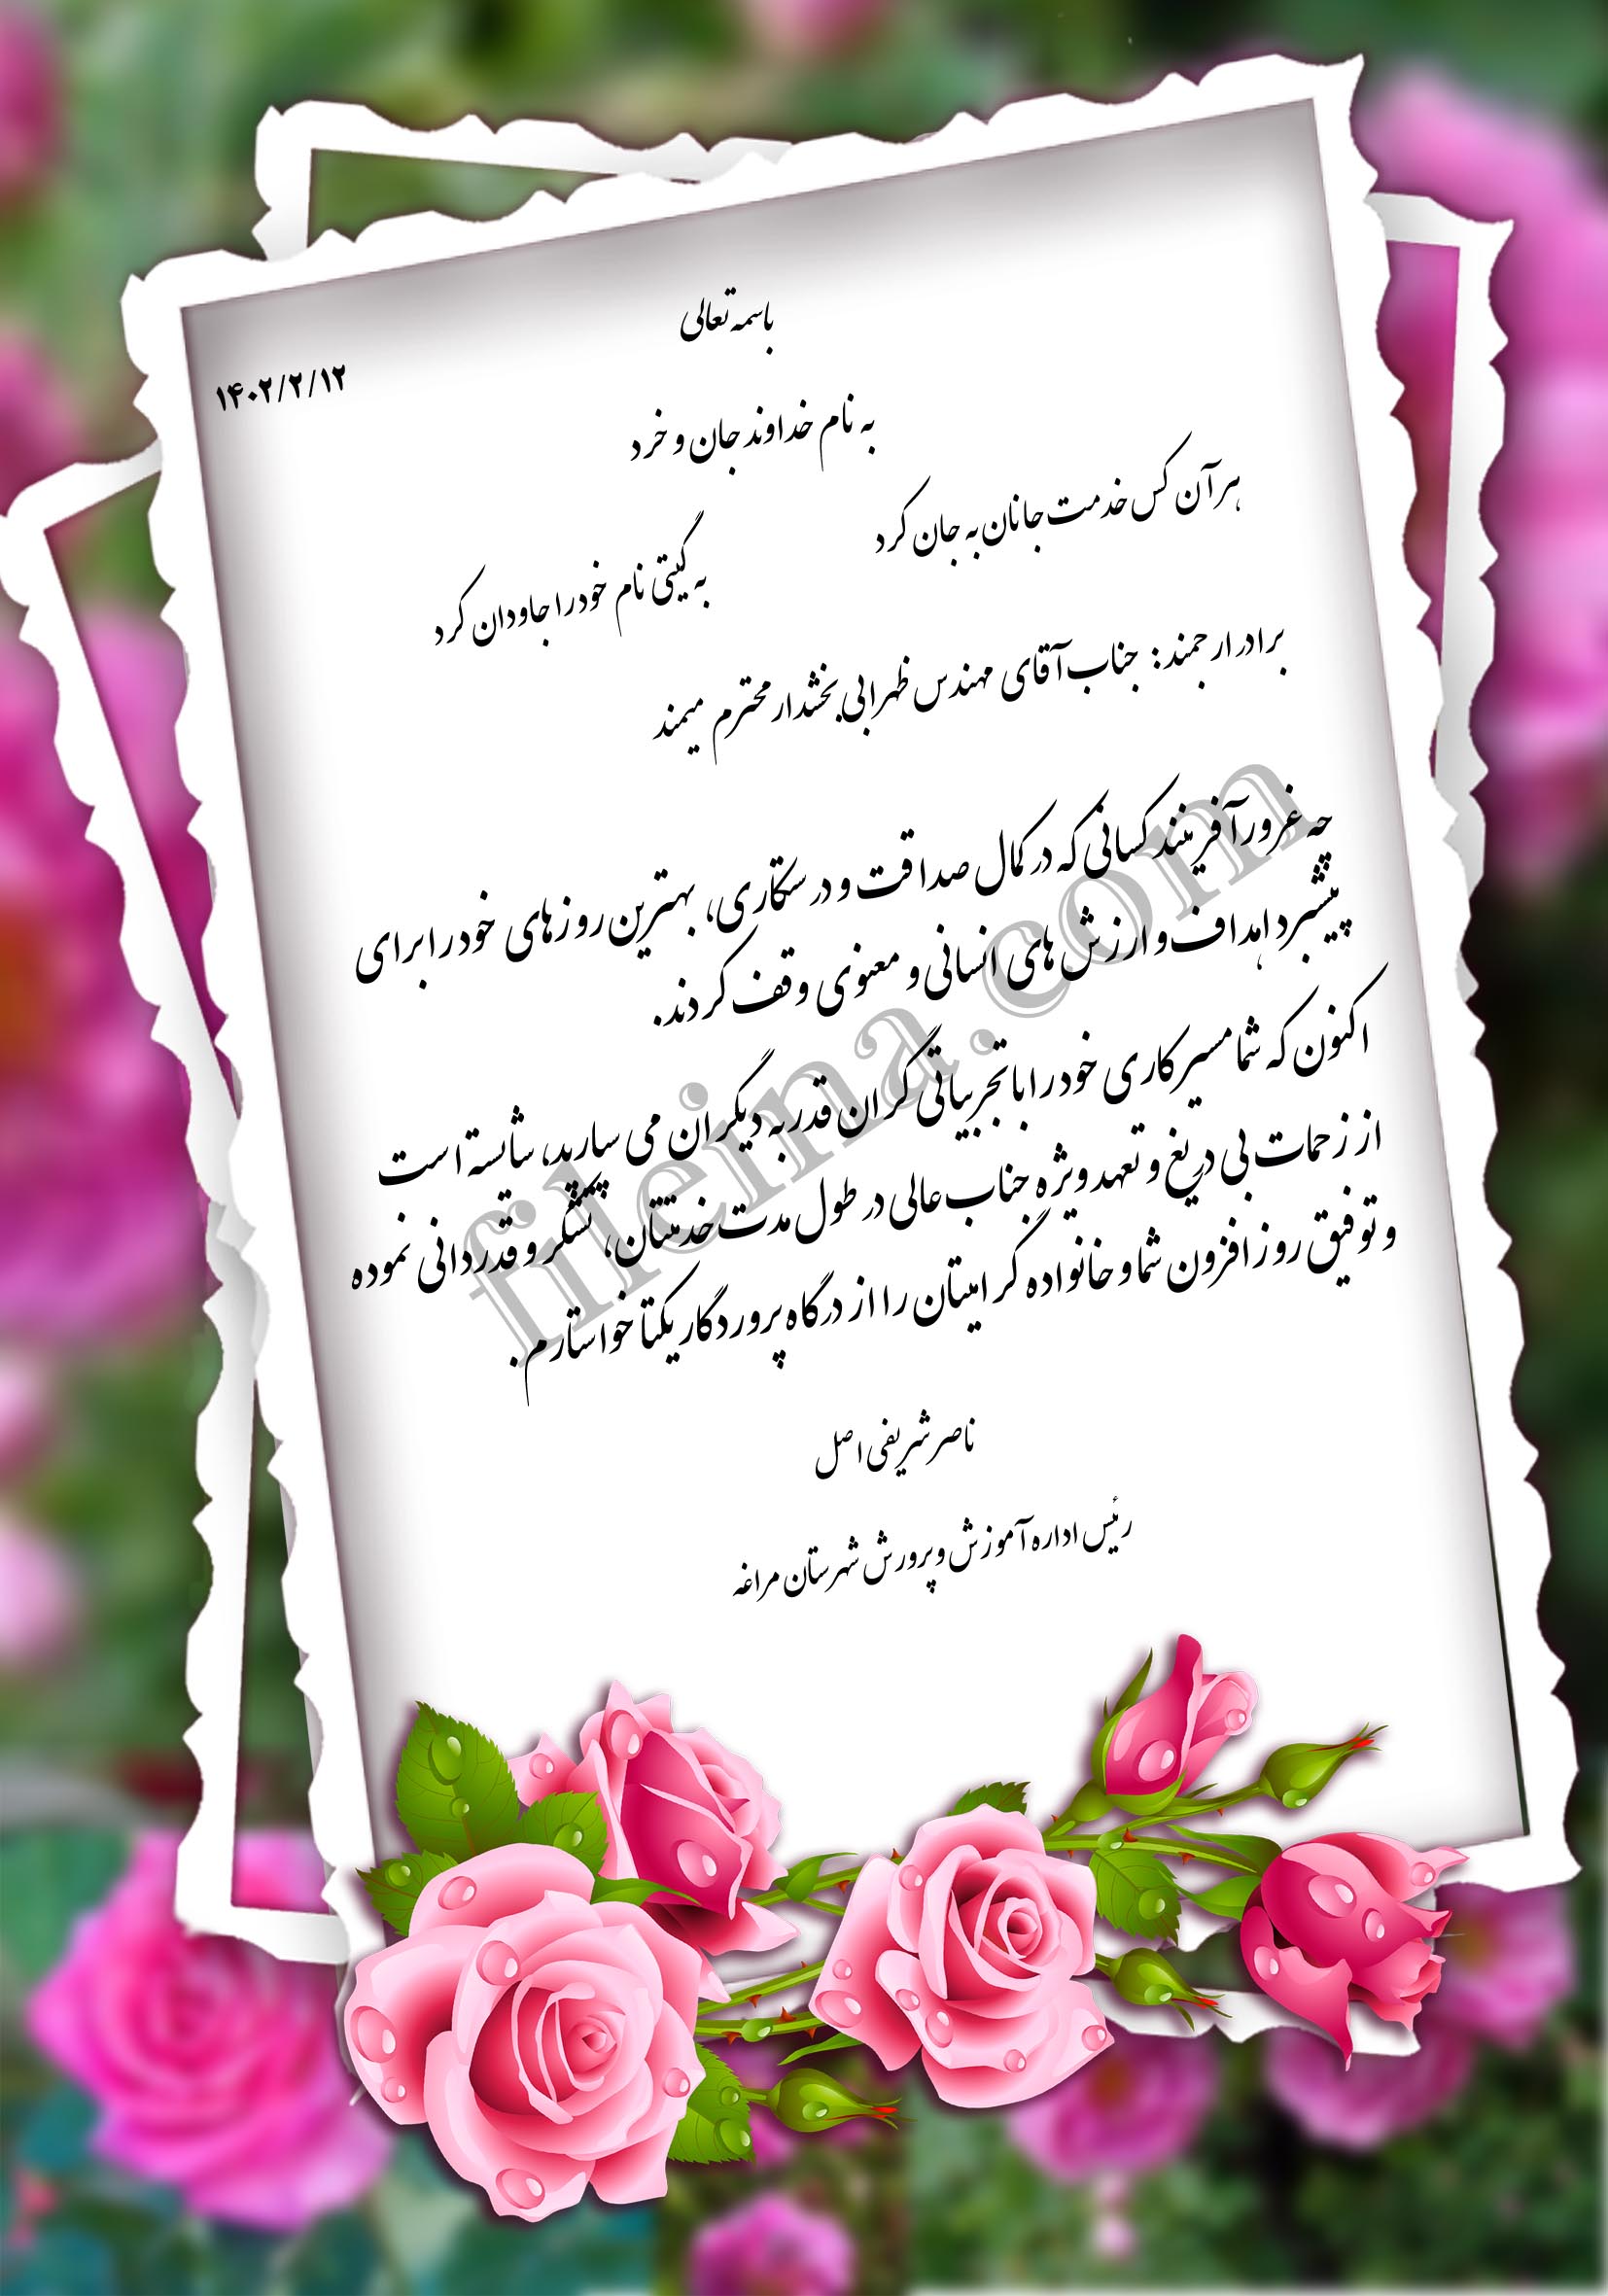 باسمه تعالی
۱۴۰۲/۲/۱۲
به نام خداوند جان و خرد
هر آن کس خدمت جانان به جان کرد
به گیتی نام خود را جاودان کرد
برادر ارجمند: جناب آقای مهندس ظهرابی بخشدار محترم میمند
چه غرورآفرینند کسانی که در کمال صداقت و درستکاری، بهترین روزهای خود را برای
پیشبرد اهداف و ارزش های انسانی و معنوی وقف کردند.
اکنون که شما مسیر کاری خود را با تجربیاتی گران قدر به دیگران می سپارید، شایسته است
از زحمات بی دریغ و تعهد ویژه جناب عالی در طول مدت خدمتتان، تشکر و قدردانی نموده
و توفیق روز افزون شما و خانواده گرامیتان را از درگاه پروردگار یکتا خواستارم.
ناصر شریفی اصل
رئیس اداره آموزش و پرورش شهرستان مراغه
fileina.com